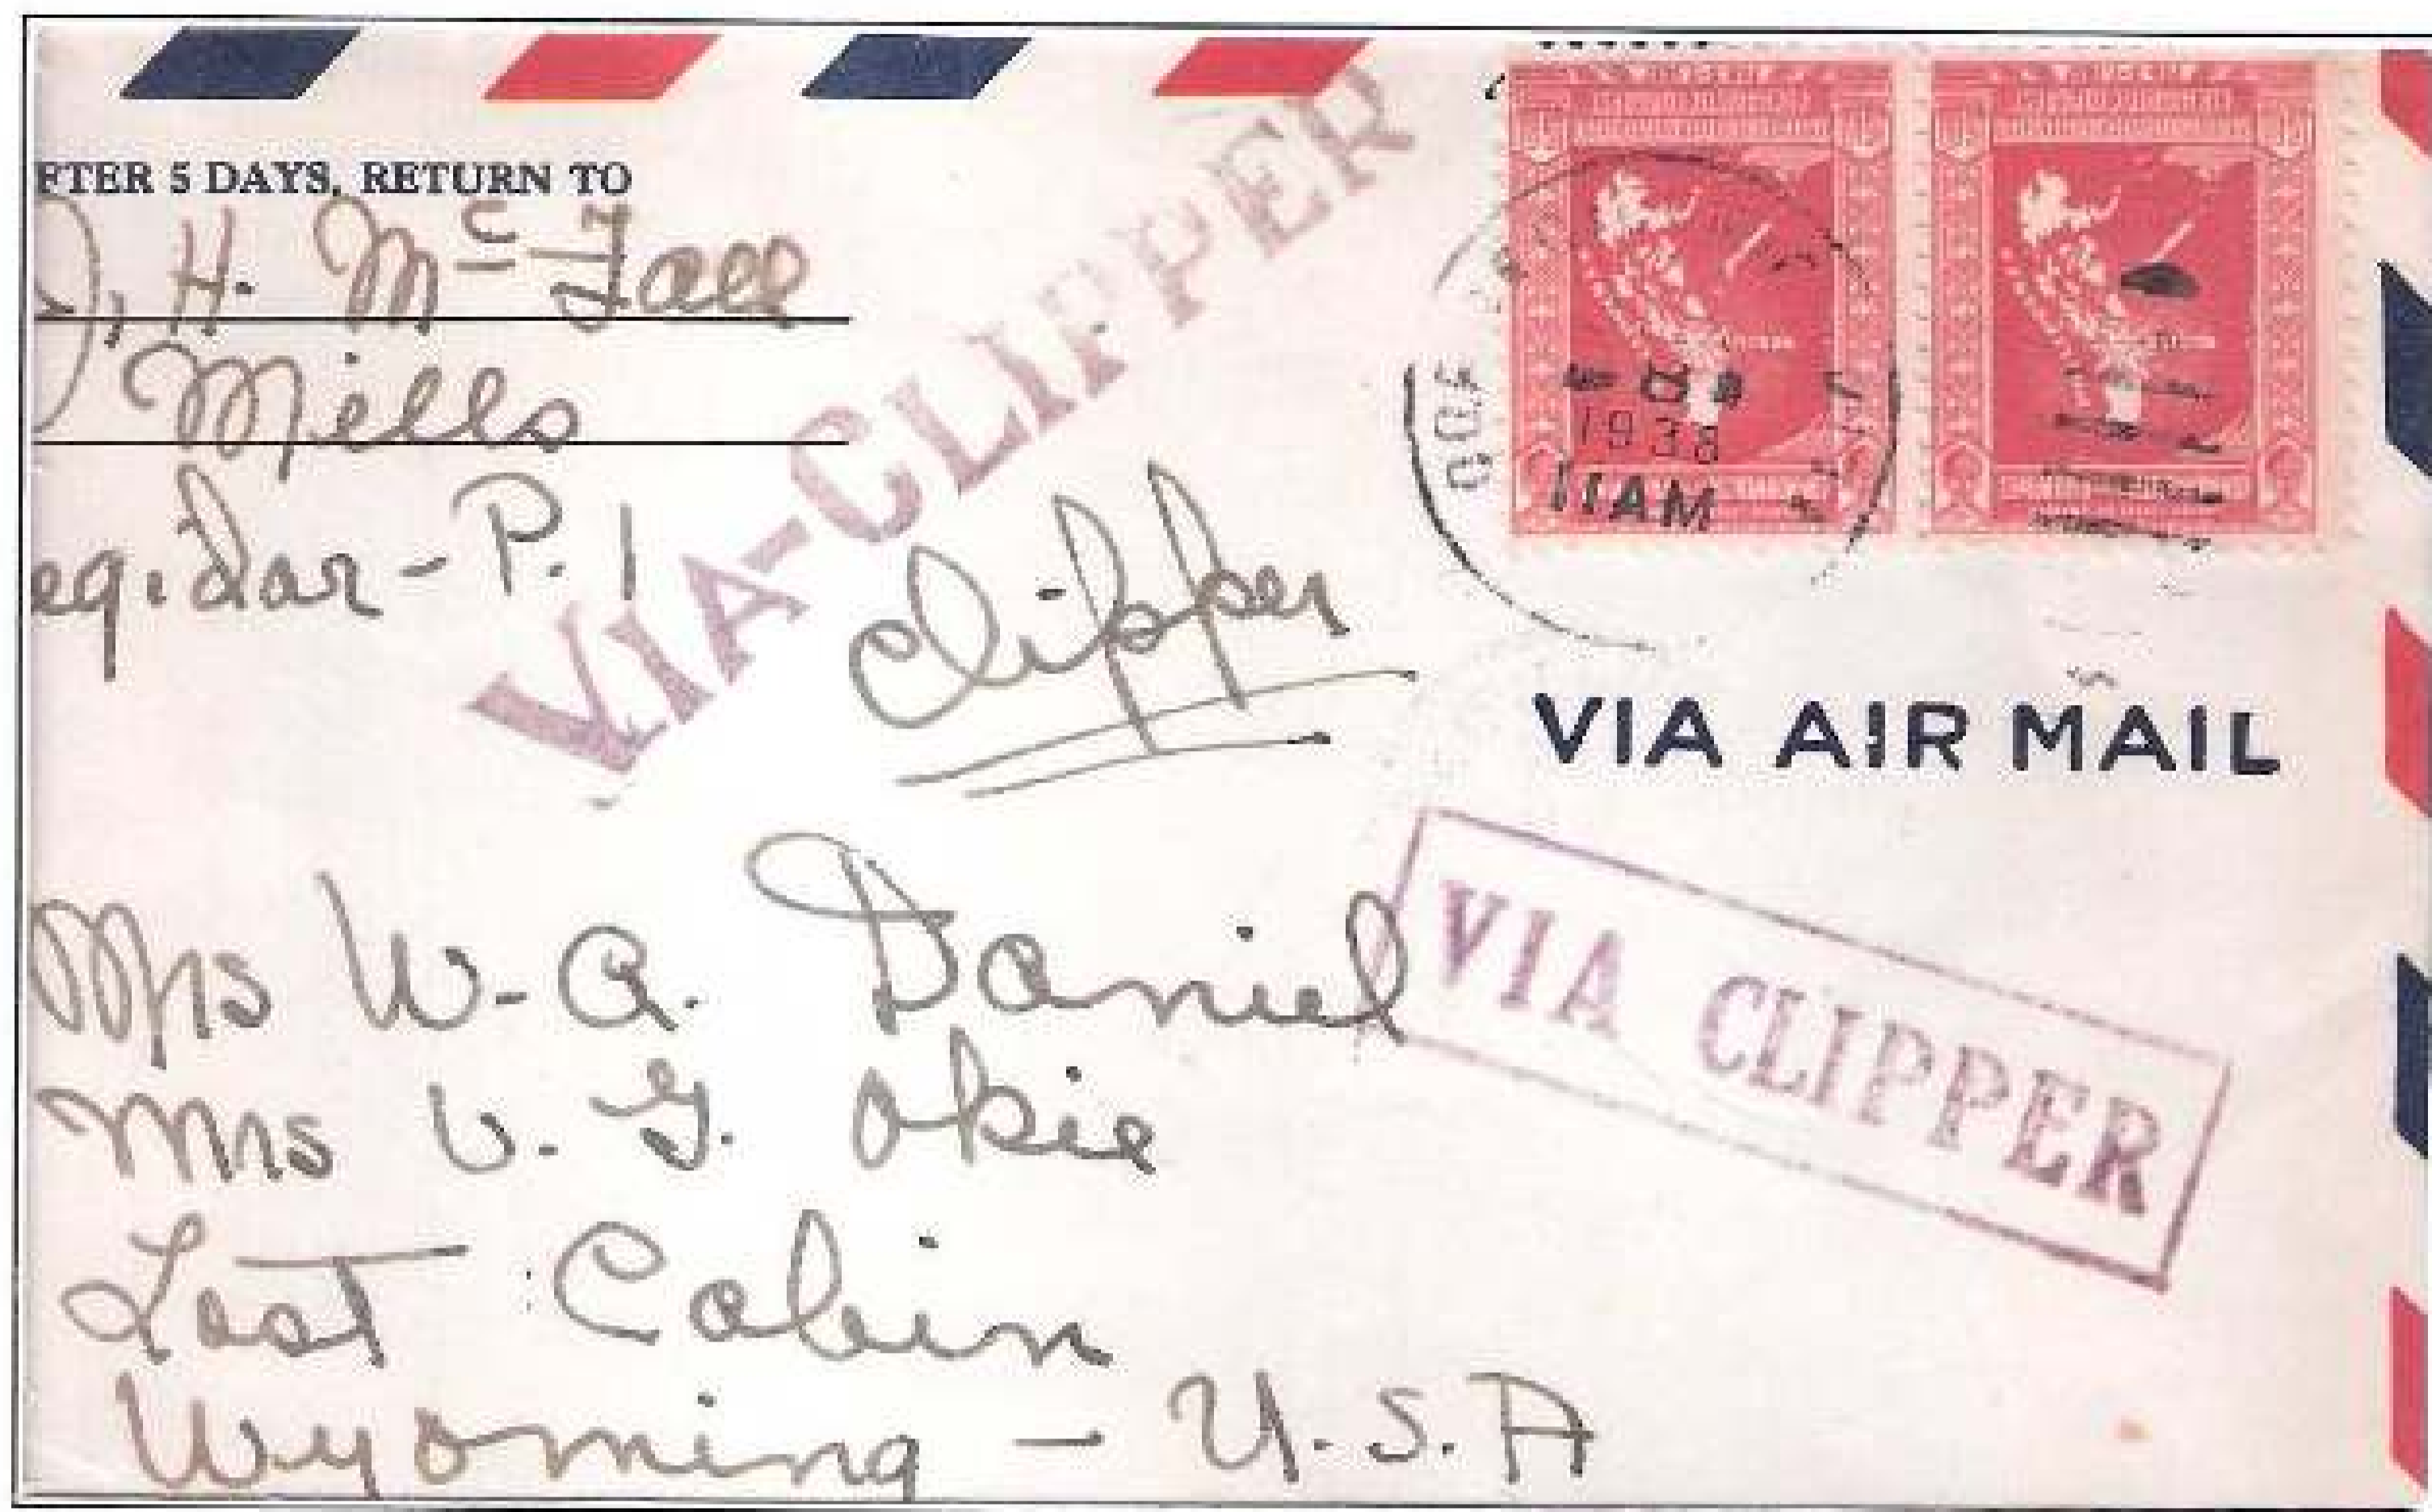 FTER 5 DAYS, RETURN TO
J. H. McFall
Mills
eg. Dar - P. I
VIA-CLIPPER
Clipper
1938
11AM
VIA AIR MAIL
VIA CLIPPER
Mrs W. A. Daniel
Mrs V. G. Okie
Lost Cabin
Wyoming - U.S.A